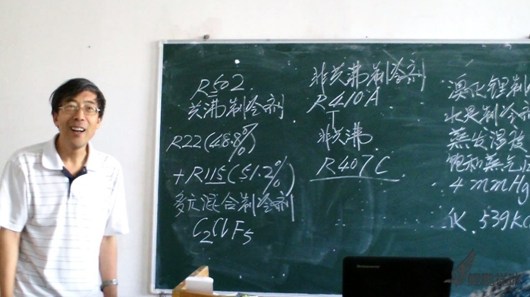 R502
共沸制冷剂
R22(48.8%)
+R115(51.2%)
多元混合制冷剂
C₂ClF₅
非共沸制冷剂
R410A
非共沸
R407C
溴化锂制
水是制冷
蒸发温度
饱和蒸气
4mmHg
539kc